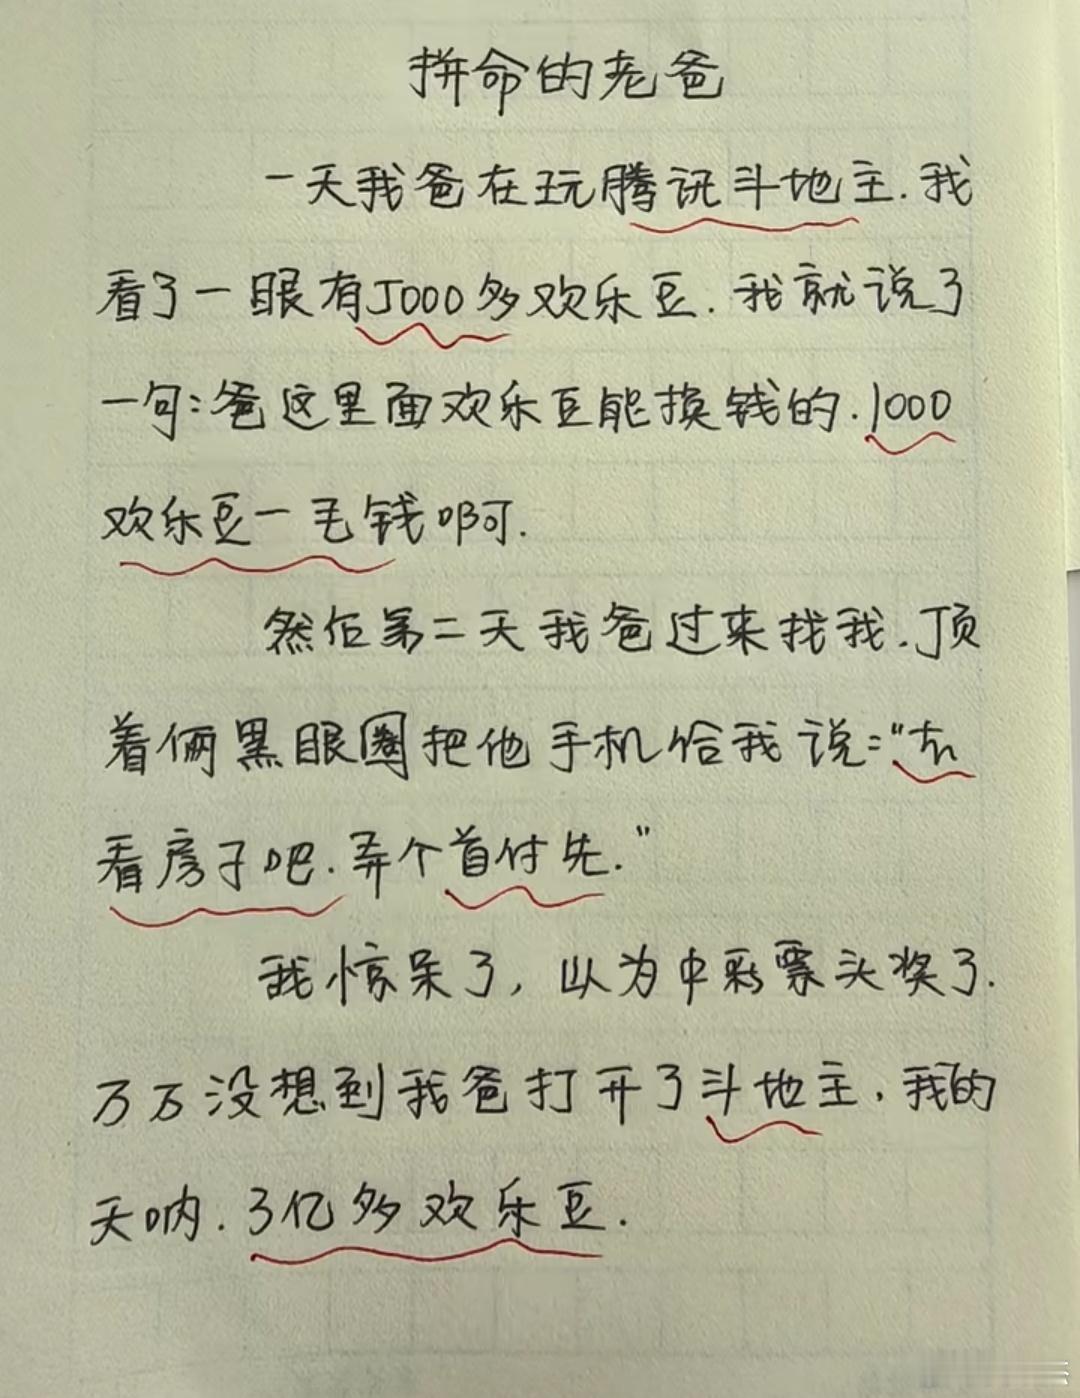 拼命的老爸
一天我爸在玩腾讯斗地主.我
看了一眼有5000多欢乐豆.我就说了
一句:爸这里面欢乐豆能换钱的.1000
欢乐豆一毛钱啊.
然后第二天我爸过来找我.顶
着俩黑眼圈把他手机给我说:"去
看房子吧.弄个首付先."
我惊呆了,以为中彩票头奖了.
万万没想到我爸打开了斗地主,我的
天呐.3亿多欢乐豆.